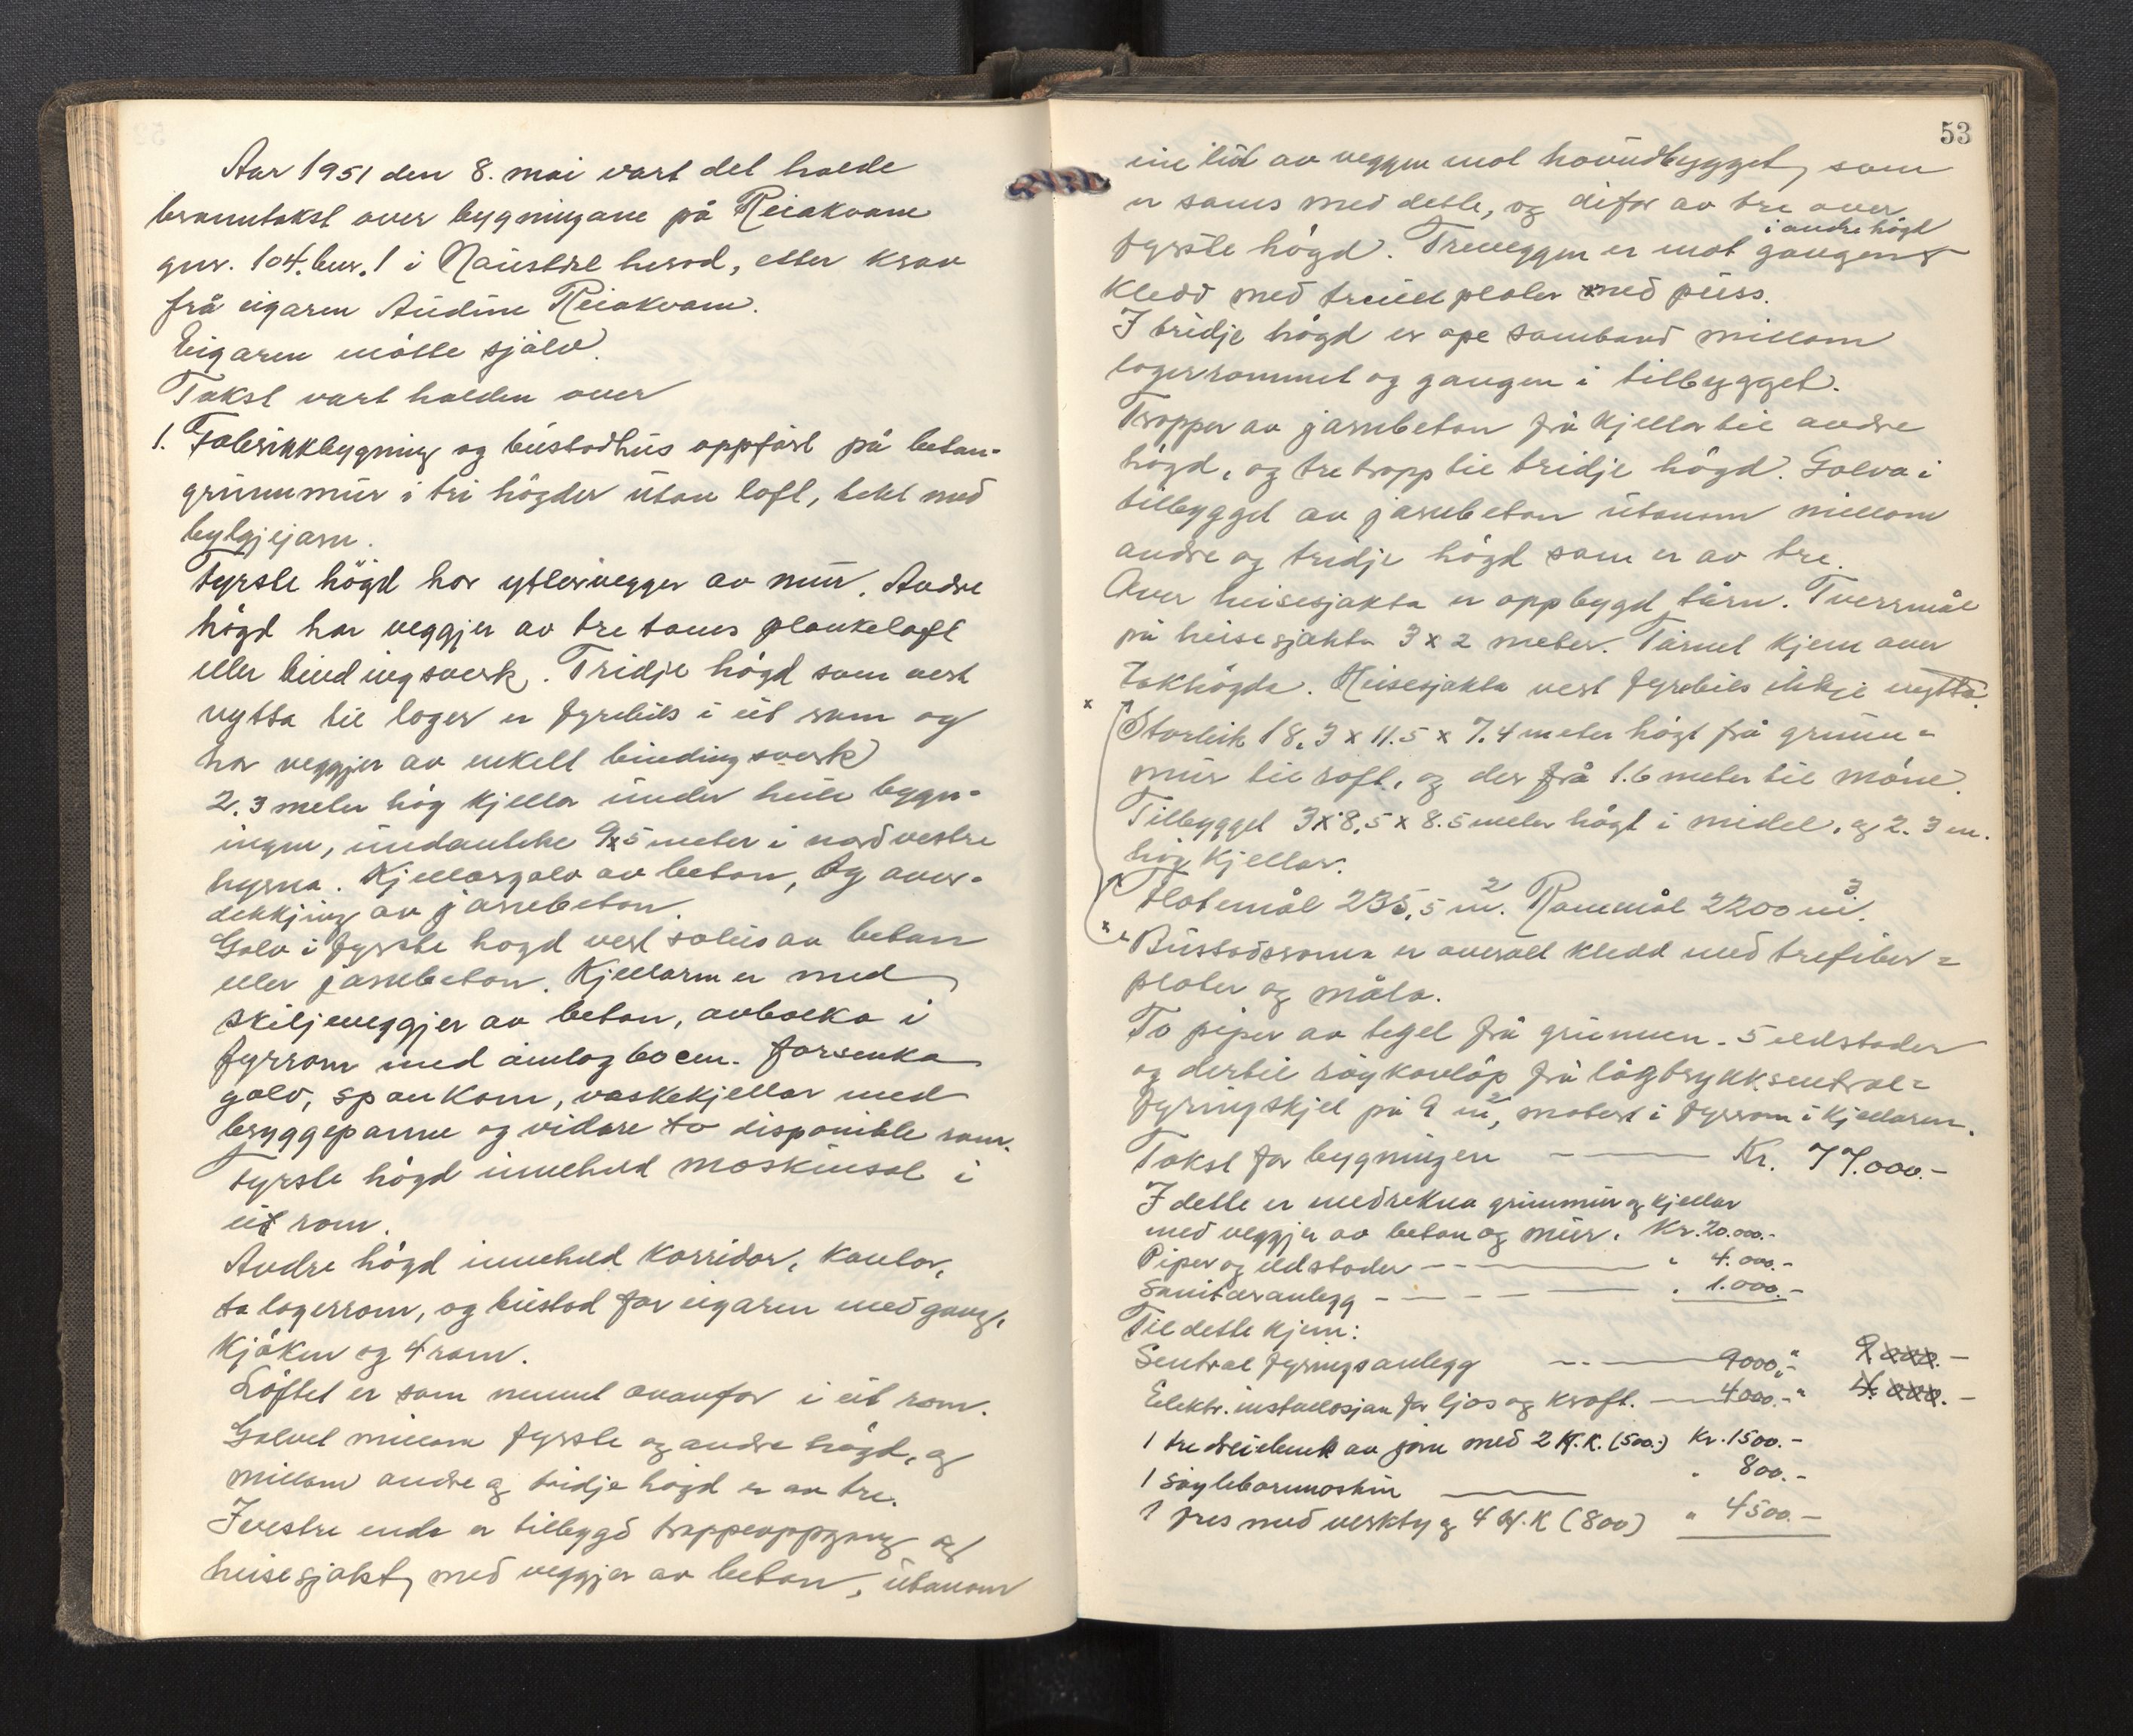 Aar 1951 den 8. mai vart det halde
branntakst over bygningane på Reiakvam
gnr. 104. bnr. 1 i Naustdal herad, etter krav
frå eigaren Audun Reiakvam.
Eigaren møtte sjølv.
Takst vart halden over
1. Fabrikkbygning og bustadhus oppført på beton-
grunnmur i tri högder utan loft, tekt med
bylgjejarn.
Fyrste högd har yttervegger av mur. Andre
högd har veggjer av tretoms plankelaft
eller bindingsverk. Tridje högd som vert
nytta til lager er fyrebils i eit rom og
har veggjer av enkelt bindingsverk
2.3 meter høg kjellar under heile bygn-
ingen, undanteke 9x5 meter i nordvestre
hyrna. Kjellargolv av beton, og over-
dekkjing av jarnbeton.
Golv i fyrste hogd vert soleis av beton
eller jarnbeton. Kjellaren er med
skiljeveggjer av beton, avbolka i
fyrrom med umlag 60 cm. forsenka
golv, sponkom, vaskekjellar med
bryggepanne og vidare to disponible rom.
Fyrste högd inneheld maskinsal i
eit rom.
Andre högd inneheld korridor, kontor,
to lagerrom, og bustad for eigaren med gang,
kjöken og 4 rom.
Loftet er som nemnt ovanfor i eit rom.
Golvet millom fyrste og andre högd, og
millom andre og tridje högd er av tre.
I vestre ende er tilbygd trappeoppgang og
heisesjakt, med veggjer av beton, utanom
53
ein lut av veggen mot hovudbygget, som
er sams med dette, og difor av tre over
i andre högd
fyrste högd. Treveggen er mot gangen
kledd med treull plater med puss.
I tridje högd er ope samband millom
lagerrommet og gangen i tilbygget.
Trapper av jarnbeton frå kjellar til andre
högd, og tretrapp til tridje högd. Golva i
tilbygget av jarnbeton utanom millom
andre og tridje högd som er av tre.
Over heisesjakta er oppbygd tårn. Tverrmål
på heisesjakta 3 x 2 meter. Tårnet kjem over
takhögda. Heisesjakta vert fyrebils ikkje nytta.
x Storleik 18.3 x 11.5 x 7.4 meter högt frå grunn-
mur til roft, og der frå 1.6 meter til möne.
Tilbygget 3 x 8,5 x 8.5 meter högt i midel, og 2.3 m.
høg kjellar.
Flatemål 235,5 m². Romemål 2200 m³.
x Bustadromma er overalt kledd med trefiber-
plater og måla.
To piper av tegel frå grunnen. 5 eldstader
og dertil röykavlöp frå lågtrykksentral-
fyringskjel på 9 m², montert i fyrrom i kjellaren.
Takst for bygningen — Kr. 77.000.-
I dette er medrekna grunnmur og kjellar
med veggjer av beton og mur. Kr. 20.000.-
Piper og eldstader — " 4.000.-
Sanitæranlegg — " 1.000.-
Til dette kjem:
Sentral fyringsanlegg — 9000,-
Elektr. installasjon for ljos og kraft. — 4000.- "
1 tre dreiebenk av jarn med 2 H.K. (500.-) Kr. 1500.-
1 söyleboremaskin — " 800.-
1 fres med verktyg 4 H.K (800) " 4500.-